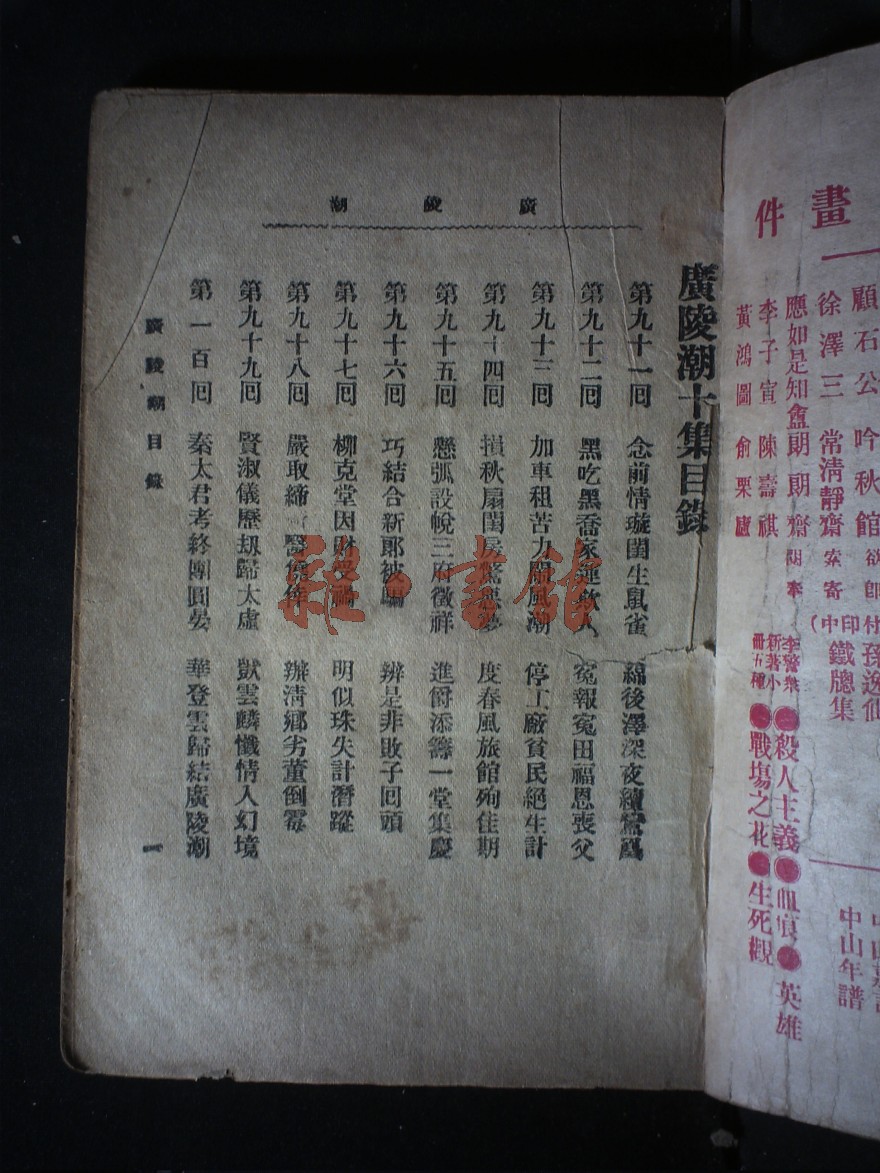 廣陵潮
廣陵潮十集目錄
第九十一回 念前情璇閨生鼠雀 綿後澤深夜續鴛鴦
第九十二回 黑吃黑喬家運救人 冤報冤田福恩喪父
第九十三回 加車租苦力鬧風潮 停工廠貧民絕生計
第九十四回 損秋扇閨房驚噩夢 度春風旅館殉佳期
第九十五回 懸弧設帨三府徵祥 進爵添籌一堂集慶
第九十六回 巧結合新郎被騙 辨是非敗子回頭
第九十七回 柳克堂因財受禍 明似珠失計潛蹤
第九十八回 嚴取締 醫 倖 辦淸鄉劣董倒霉
第九十九回 賢淑儀歷刼歸太虛 獃雲麟懺情入幻境
第一百回 秦太君考終團圓宴 華登雲歸結廣陵潮
廣陵潮目錄
一
畫件
顧石公 吟秋館
徐澤三 常淸靜齋
應如是知盦 朗朗齋
李子寅 陳壽祺
黃鴻圖 俞栗廬
孫逸仙
鐵牕集
李警衆
新著小
冊五種
殺人主義 血痕 英雄
戰塲之花 生死觀
中山年譜
雜·書館